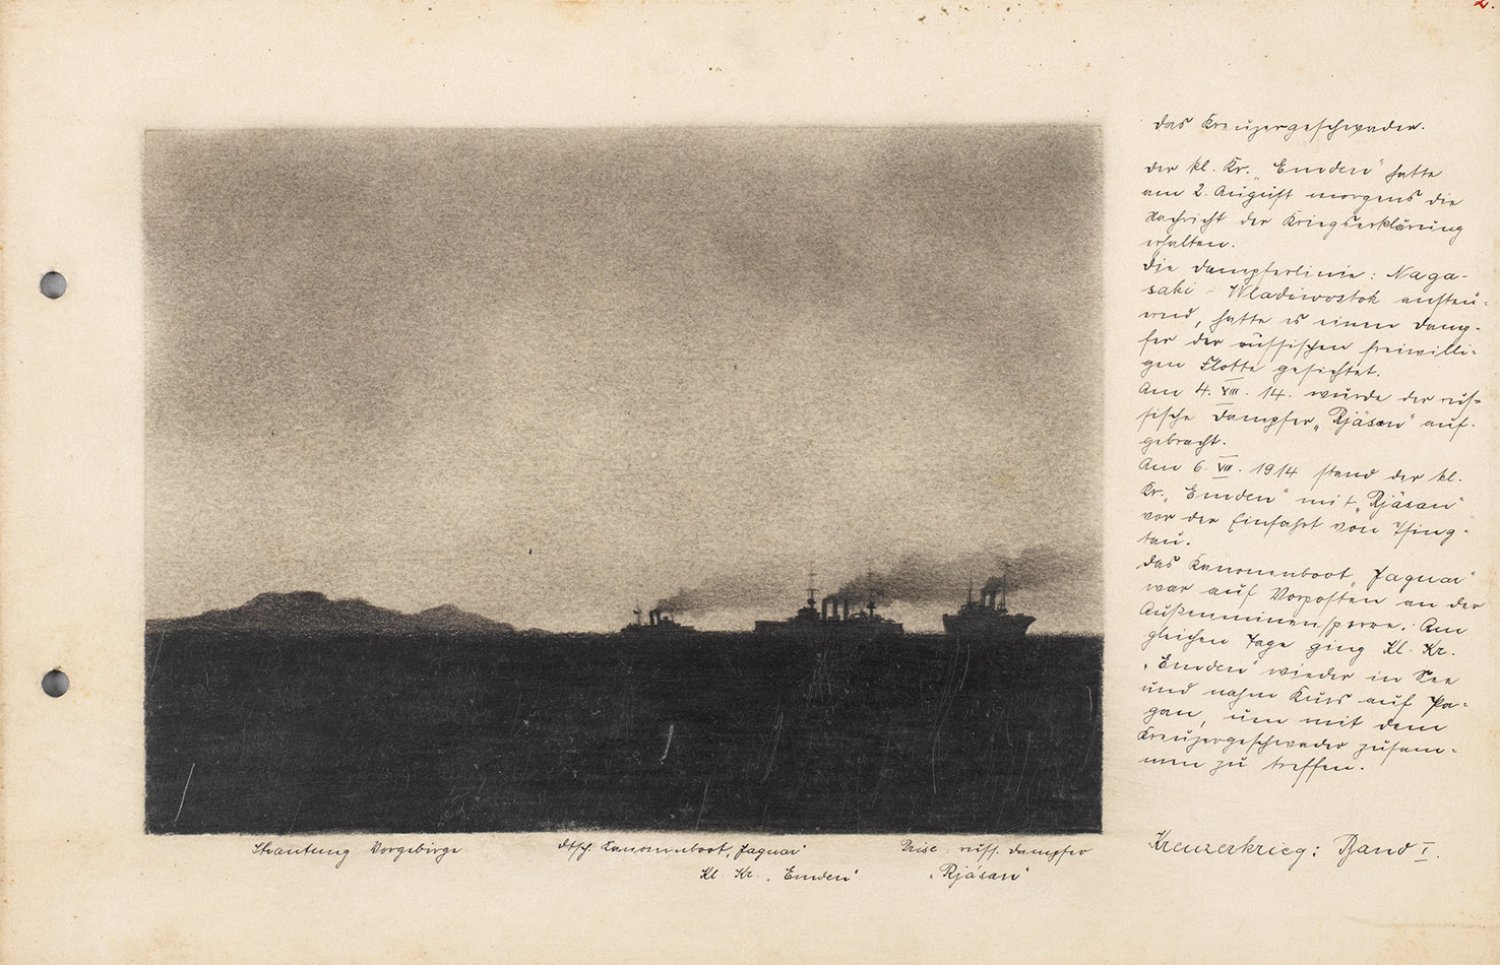 2.
Das Kreuzergeschwader.
Der kl. Kr. „Emden" hatte
am 2. August morgens die
Nachricht der Kriegserklärung
erhalten.
Die Dampferlinie: Naga-
saki - Wladiwostok ansteu-
ernd, hatte es einen Damp-
fer der russischen freiwilli-
gen Flotte gesichtet.
Am 4. VIII. 14. wurde der rus-
sische Dampfer „Rjäsan" auf-
gebracht.
Am 6. VIII. 1914 stand der kl.
Kr. „Emden" mit „Rjäsan"
vor der Einfahrt von Tsing-
tau.
Das Kanonenboot „Jaguar"
war auf Vorposten an der
Außenminensperre. Am
gleichen Tage ging Kl. Kr.
„Emden" wieder in See
und nahm Kurs auf Pa-
gan, um mit dem
Kreuzergeschwader zusam-
men zu treffen.
Schantung Vorgebirge
dtsch. Kanonenboot „Jaguar"
Kl. Kr. „Emden"
Prise: russ. Dampfer
„Rjäsan"
Kreuzerkrieg: Band I.